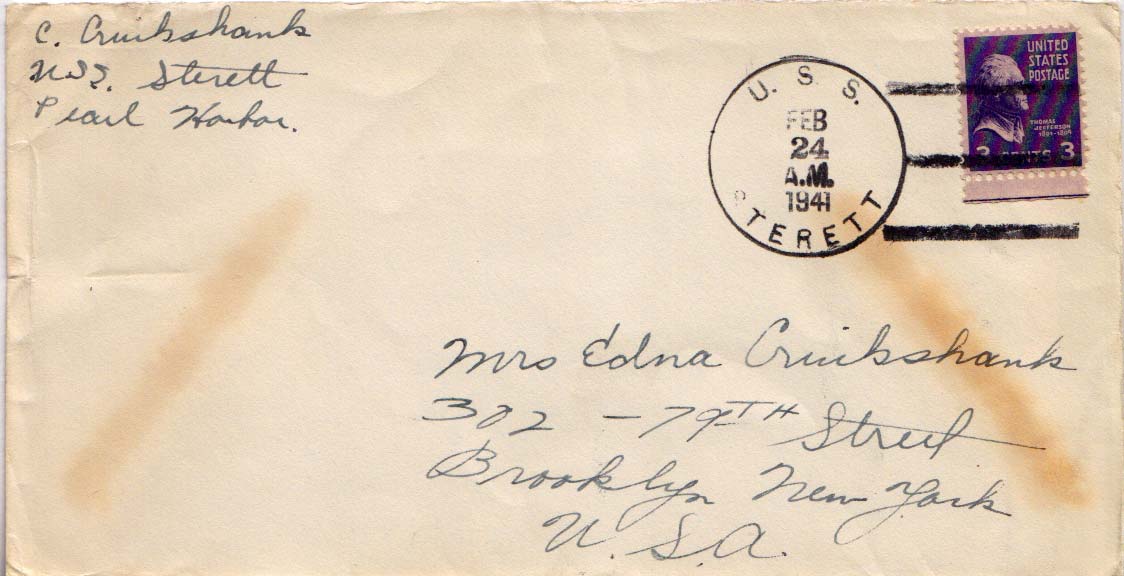 C. Cruikshank
U.S.S. Sterett
Pearl Harbor.
U. S. S.
FEB
24
A.M.
1941
STERETT
UNITED
STATES
POSTAGE
THOMAS
JEFFERSON
1801-1809
3 CENTS 3
Mrs Edna Cruikshank
302 - 79TH Street
Brooklyn New York
U.S.A.